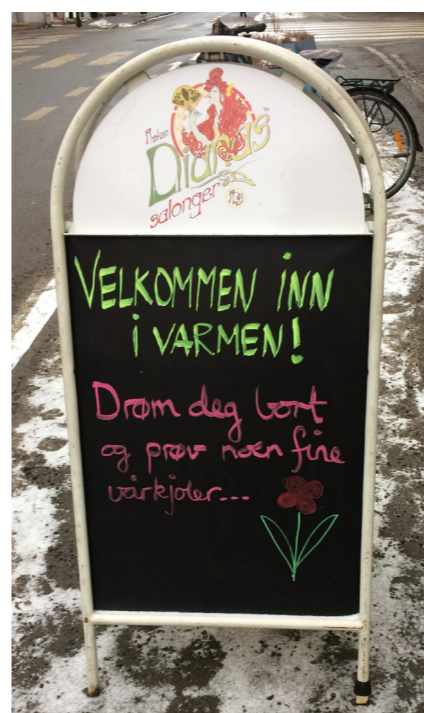 Frøken
Dianas
salonger
VELKOMMEN INN
i VARMEN!
Drøm deg bort
og prøv noen fine
vårkjoler...